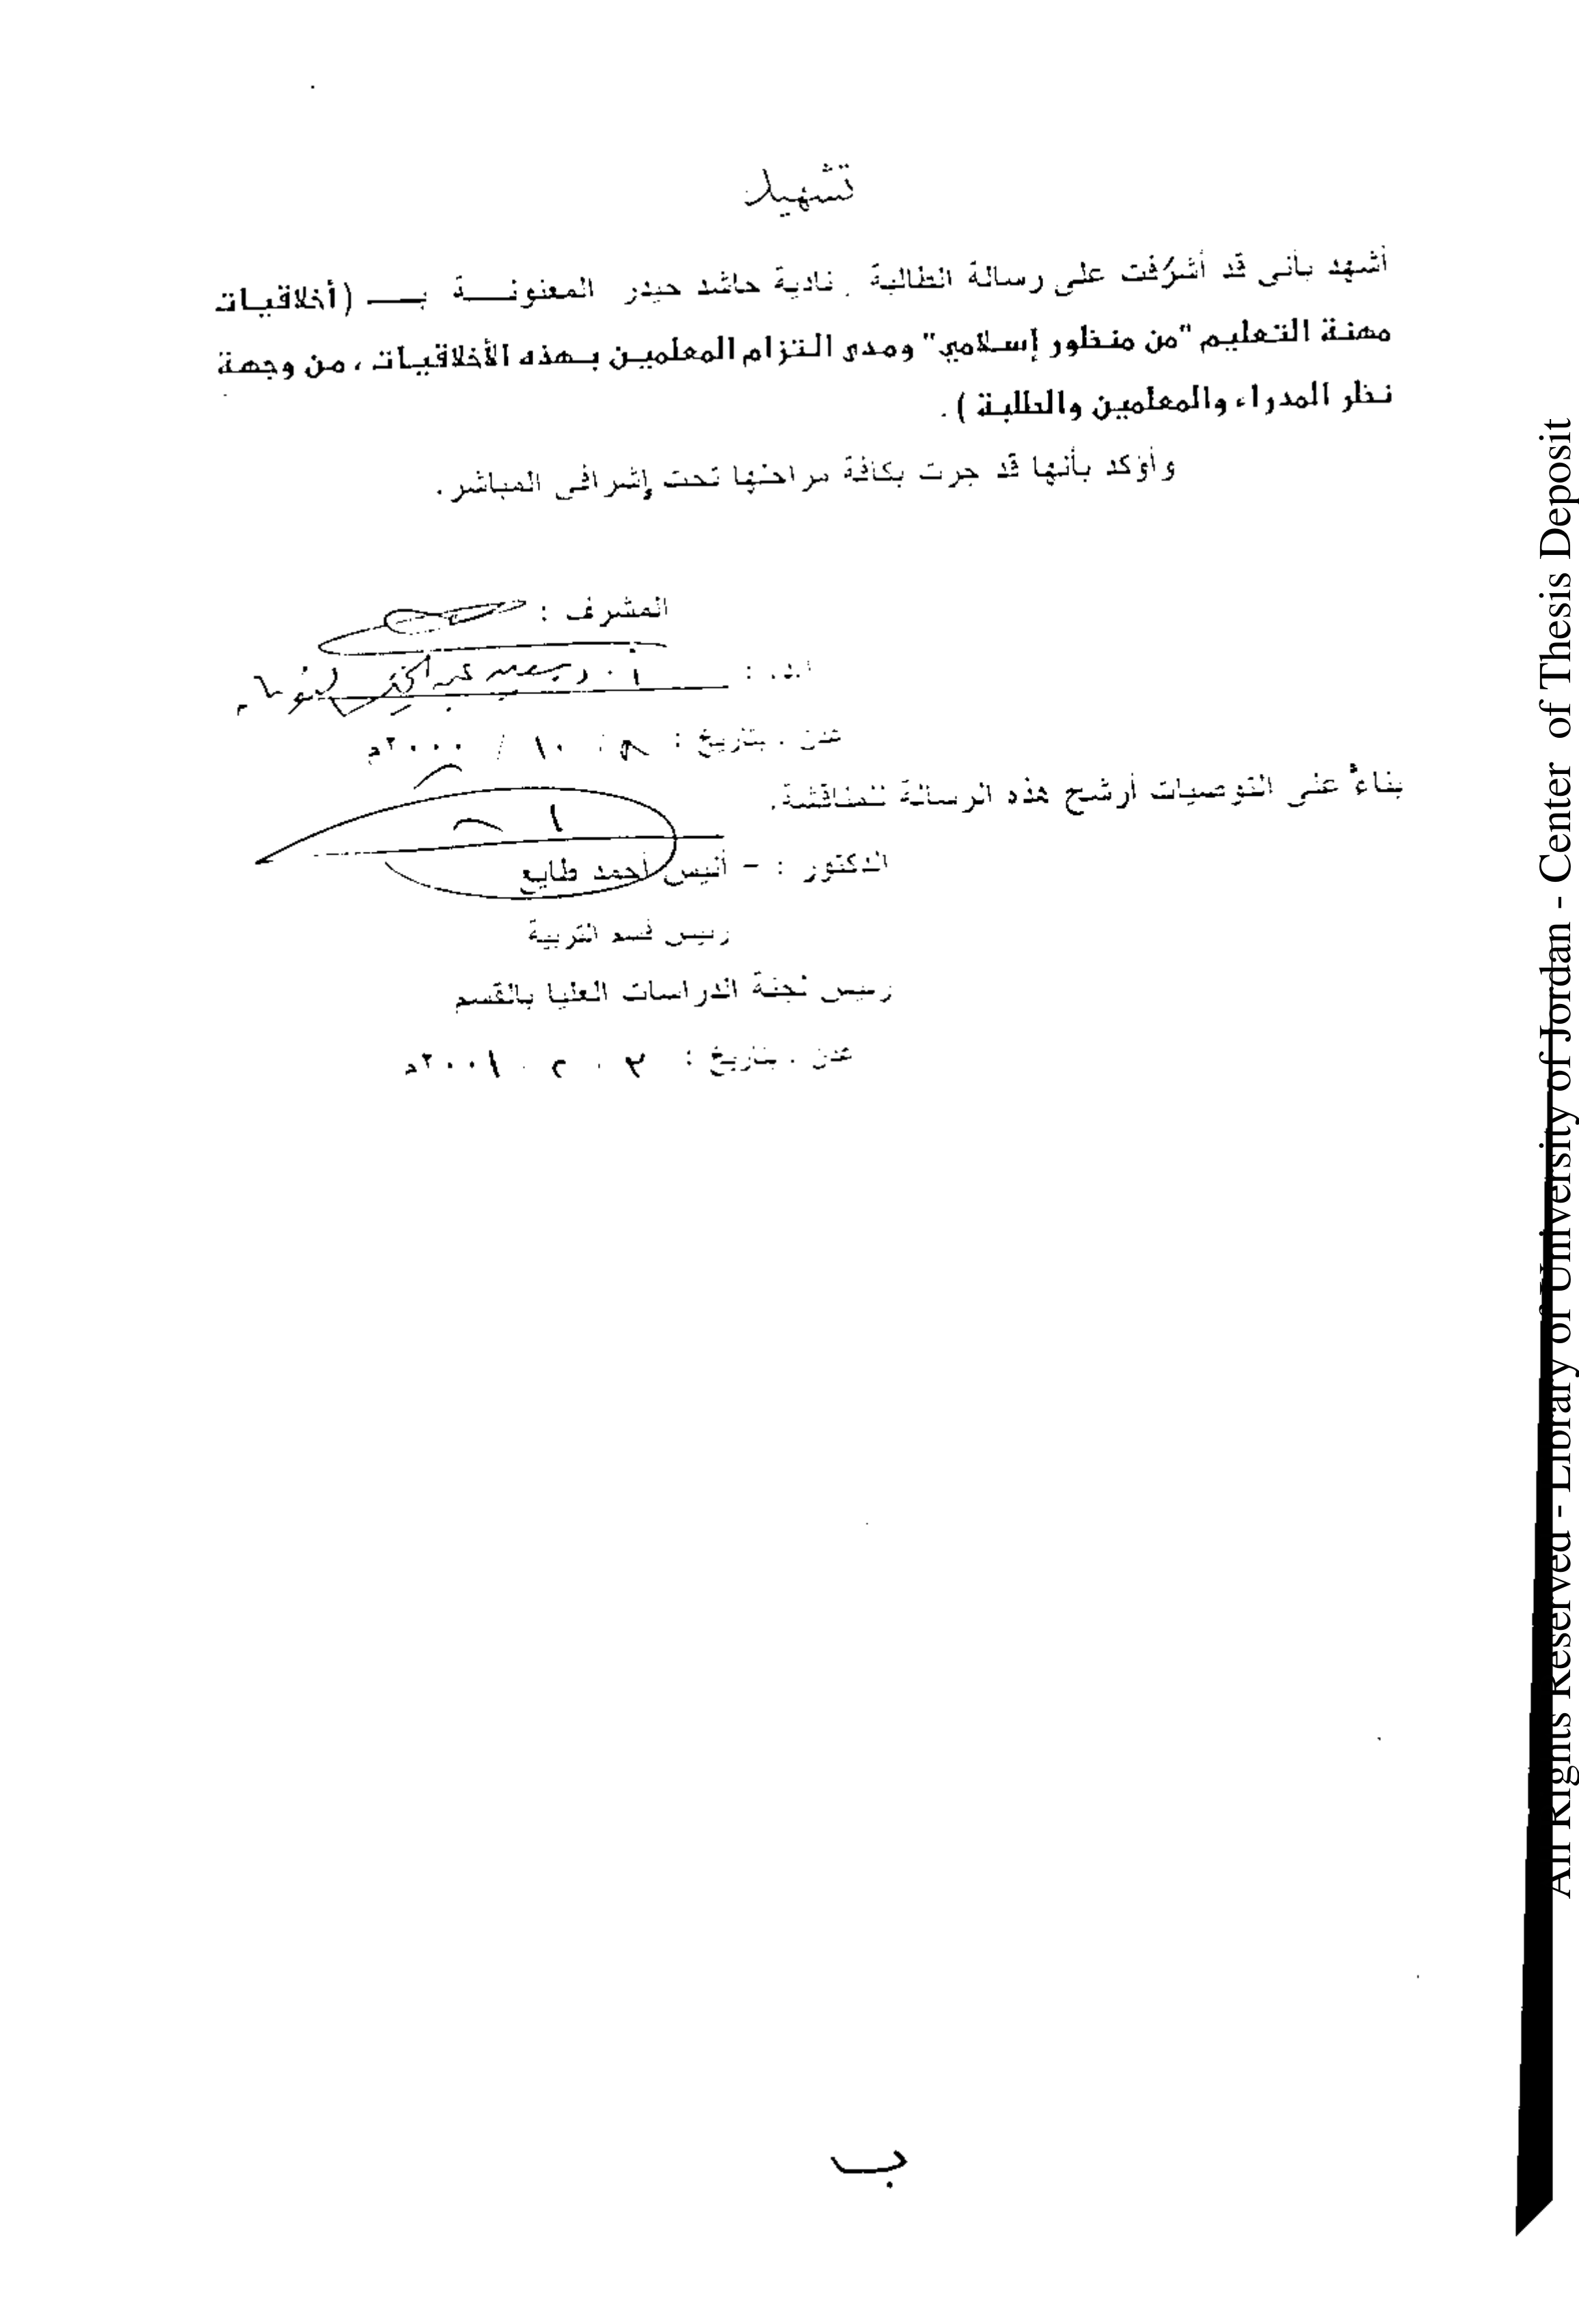 تشهيد
أشهد بأني قد أشرفت على رسالة الطالبة . نادية حاشد حيدر المعنونــة بــ (أخلاقيات
مهنة التعليم "من منظور إسلامي" ومدى التزام المعلمين بهذه الأخلاقيات ، من وجهة
نظر المدراء والمعلمين والطلبة ) .
وأؤكد بأنها قد جرت بكافة مراحلها تحت إشرافي المباشر .
المشرف :
عدن . بتاريخ : / ١٠ / ٢٠٠٠م
بناءً على التوصيات أرشح هذه الرسالة للمناقشة.
الدكتور : - أنيس أحمد طايع
رئيس قسم التربية
رئيس لجنة الدراسات العليا بالقسم
عدن . بتاريخ : ٢٠٠١م
ب
All Rights Reserved - Library of University of Jordan - Center of Thesis Deposit